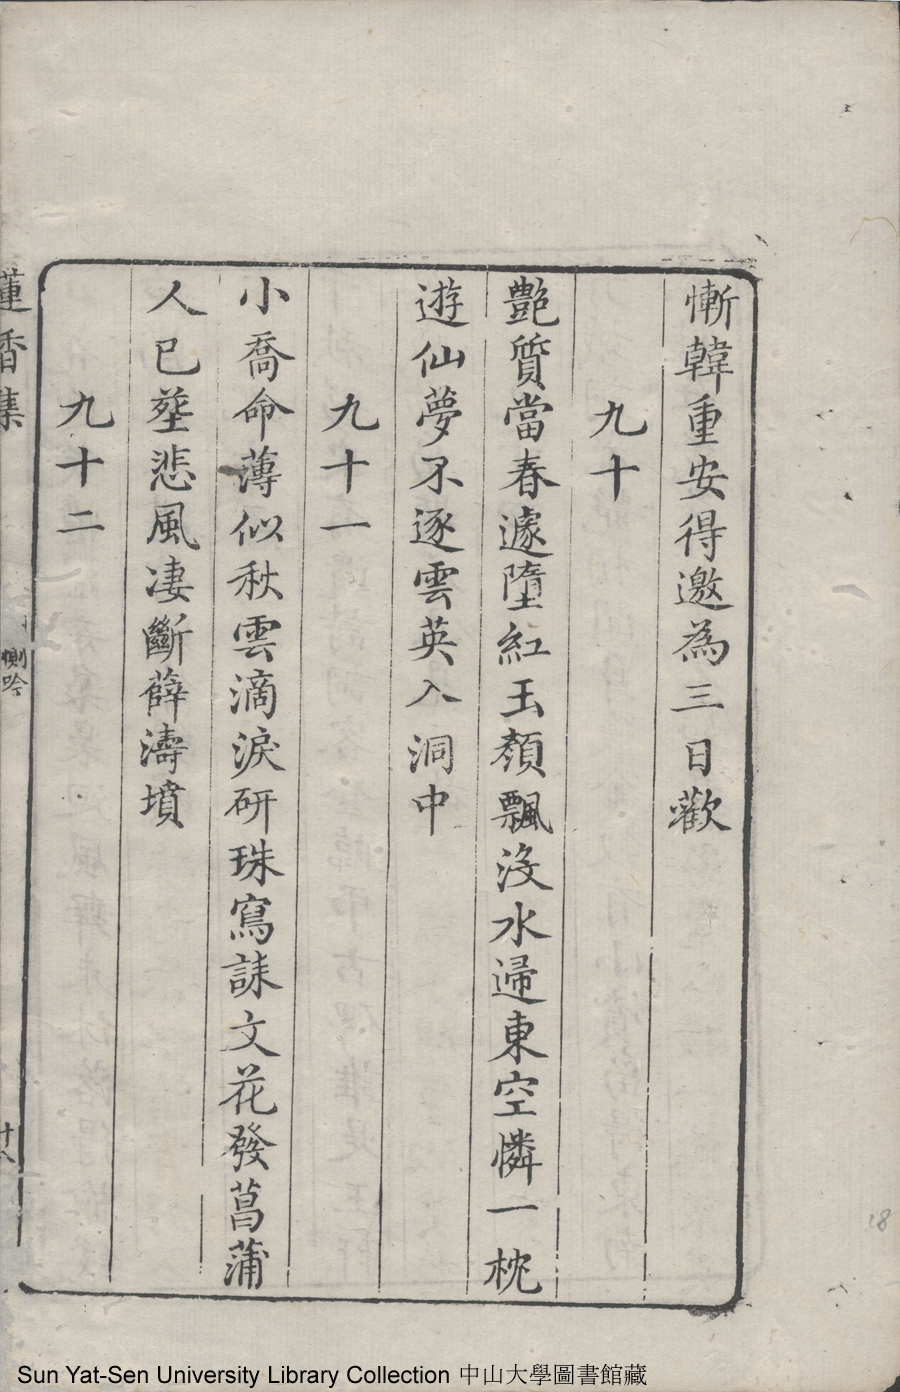 慚韓重安得邀為三日歡
九十
艷質當春遽墮紅玉顏飄沒水歸東空憐一枕
遊仙夢不逐雲英入洞中
九十一
小喬命薄似秋雲滴淚研珠寫誄文花發菖蒲
人已塟悲風凄斷薛濤墳
九十二
蓮香集
惻吟
十八
18
Sun Yat-Sen University Library Collection 中山大學圖書館藏